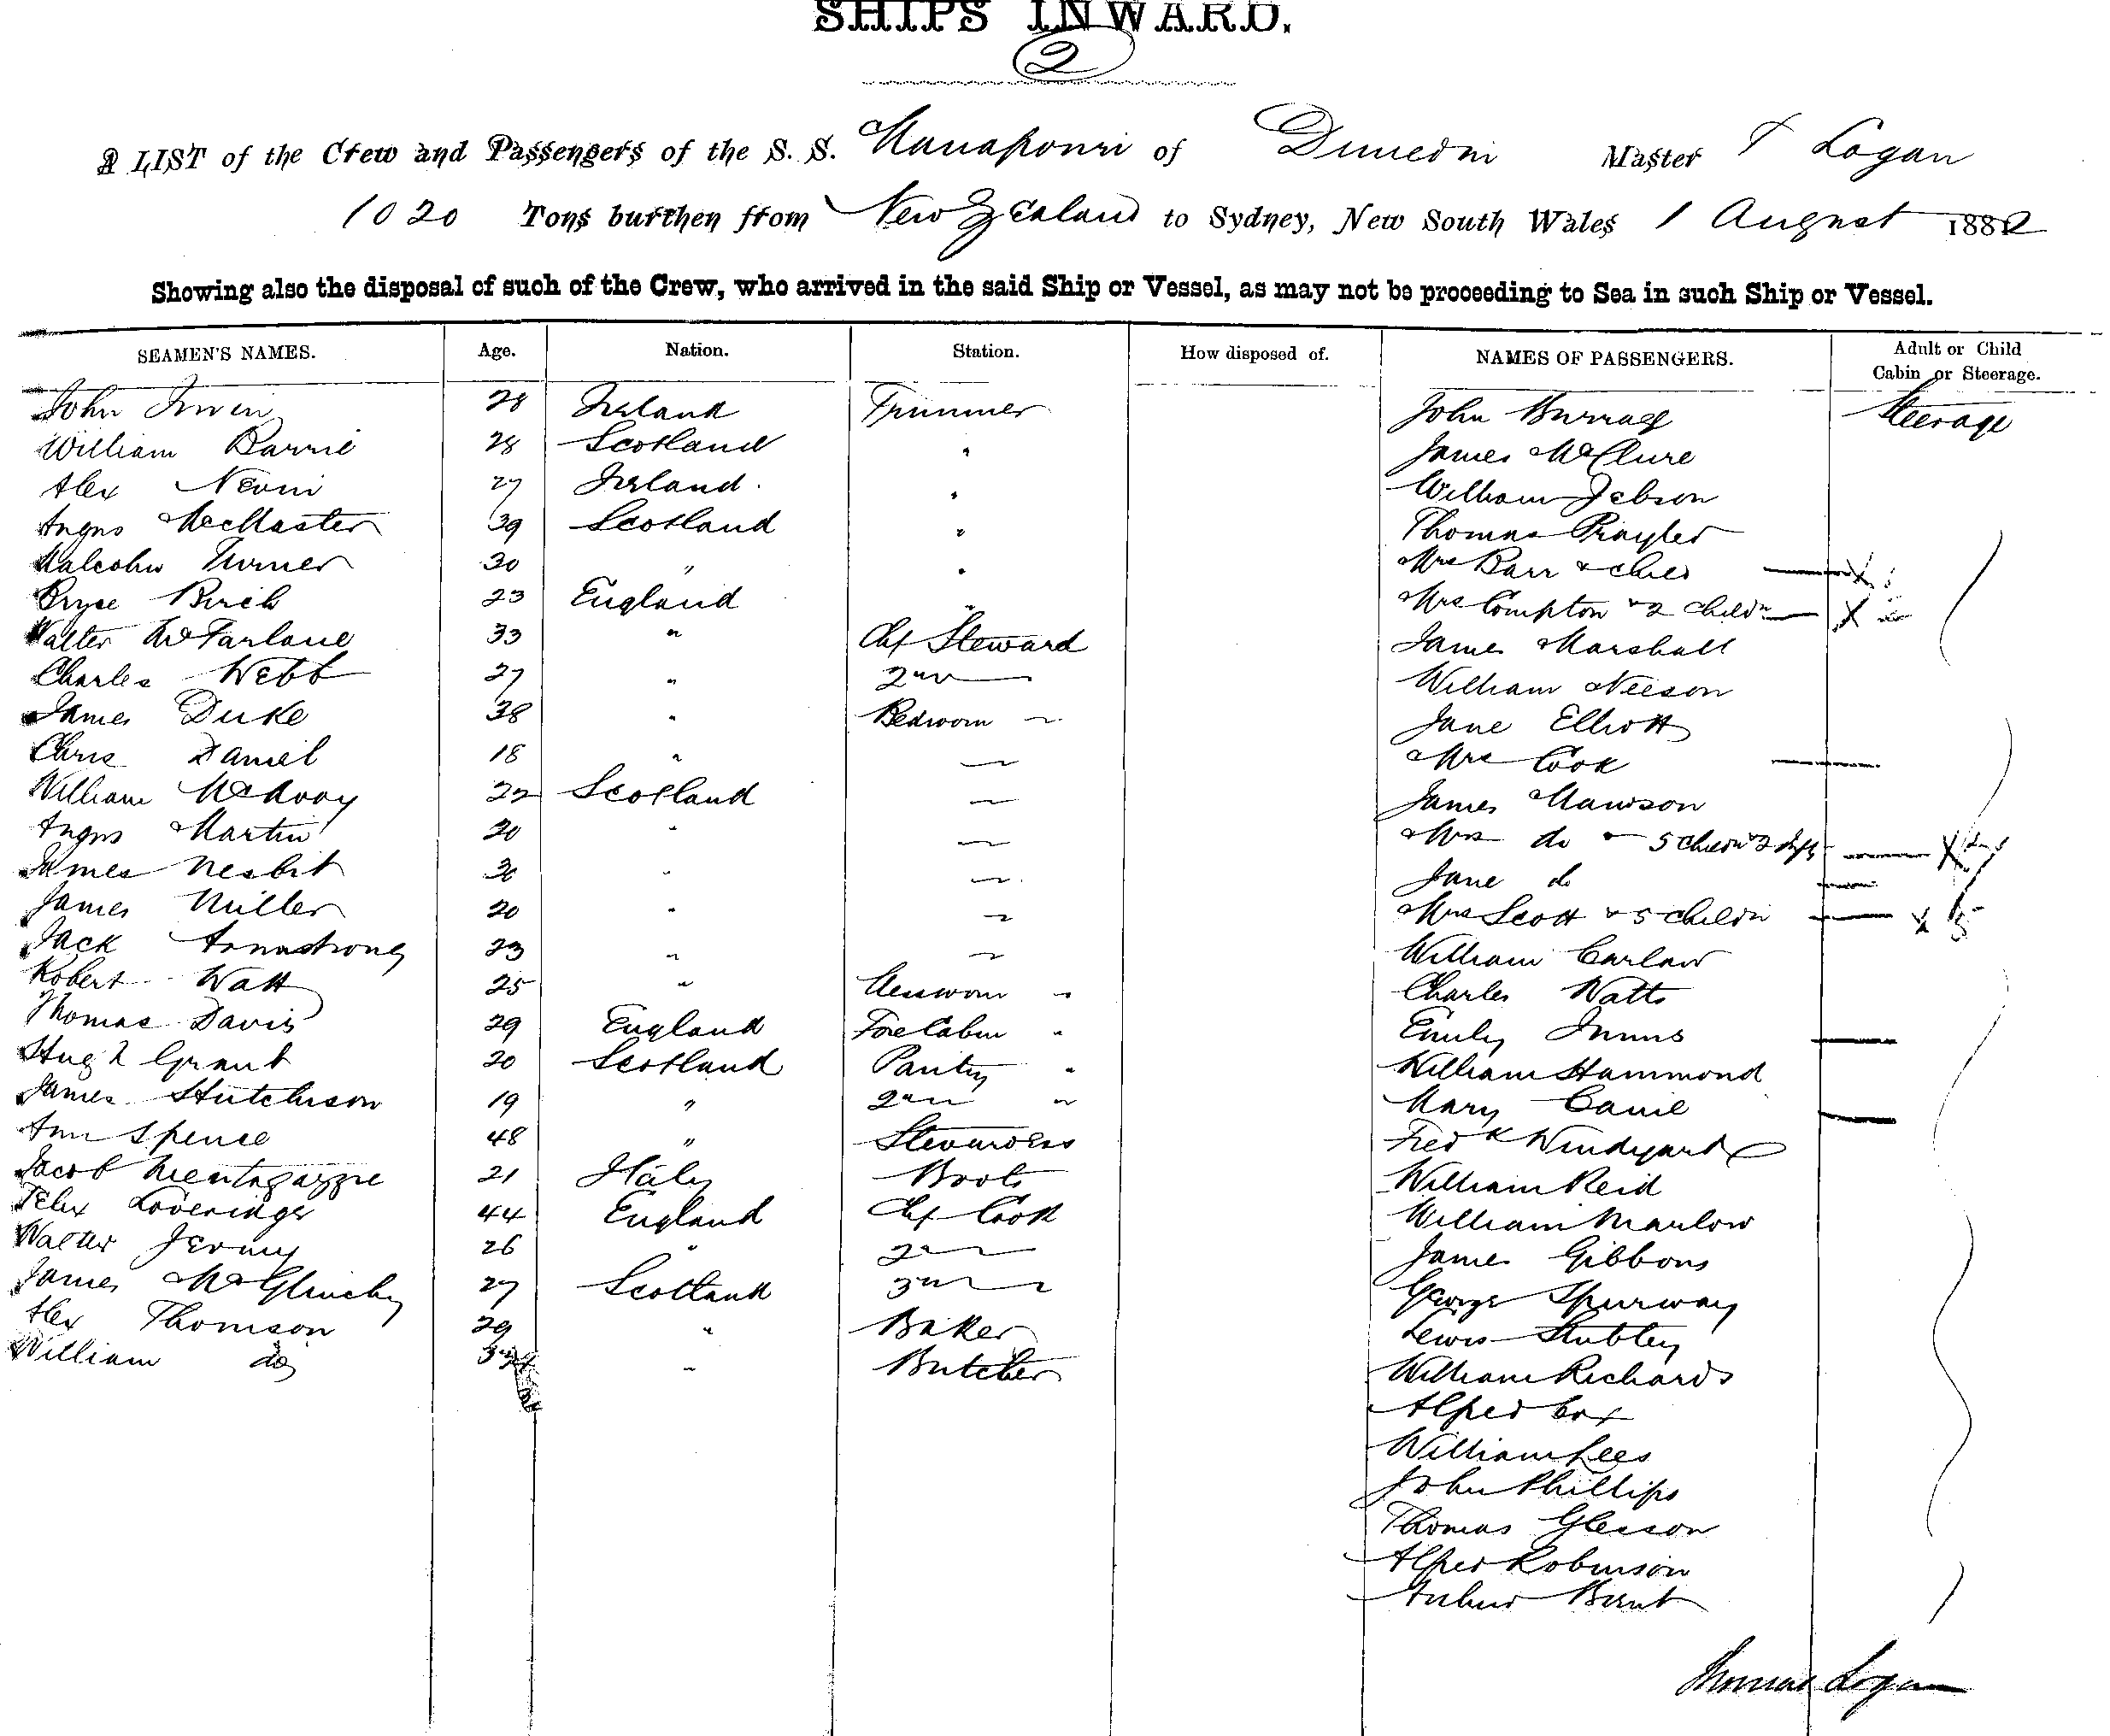 SHIPS INWARD.
2
A LIST of the Crew and Passengers of the S. S. Manapouri of Dunedin Master T Logan
1020 Tons burthen from New Zealand to Sydney, New South Wales 1 August 1882
Showing also the disposal of such of the Crew, who arrived in the said Ship or Vessel, as may not be proceeding to Sea in such Ship or Vessel.
SEAMEN'S NAMES. Age. Nation. Station. How disposed of. NAMES OF PASSENGERS. Adult or Child Cabin or Steerage.
John Irwin 28 Ireland Trimmer John Burrage Steerage
William Barrie 28 Scotland " James McClure
Alex Nevin 27 Ireland. " William Jebson
Angus MacMaster 39 Scotland " Thomas Prayter
Malcolm Turner 30 " " Mrs Barr & child
Bryce Birch 23 England " Mrs Compton & 2 Childn
Walter McFarlane 33 " Chf Steward James Marshall
Charles Webb 27 " 2nd William Neeson
James Duke 38 " Bedroom " Jane Elliott
Chris Daniel 18 " " Mrs Cook
William McAvoy 22 Scotland " James Mawson
Angus Martin 20 " " Mrs do & 5 Childn & 2
James Nesbit " " Jane do
James Miller 20 " " Mrs Scott & 5 Childn
Jack Armstrong 23 " " William Carlaw
Robert Watt 25 " Messroom " Charles Watts
Thomas Davis 29 England Fore Cabin " Emily Innus
Hugh Grant 20 Scotland Pantry " William Hammond
James Hutchison 19 " 2nd " Mary
Ann Spence 48 " Stewardess Fredk Windyard
Jacob 21 Italy Boots William Reid
Felix Loveridge 44 England Chf Cook William Marlow
Walter Jermy 26 " 2nd James Gibbons
James McGlinchy 27 Scotland 3rd George Spurway
Alex Thomson 29 " Baker Lewis Stubley
William do " Butcher William Richards
Alfred Cox
William Lees
John Phillips
Thomas Gleeson
Alfred Robinson
Arthur Brent
Thomas Logan